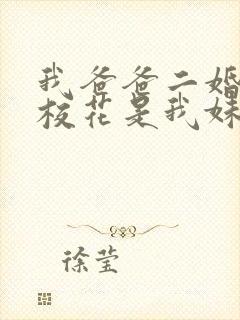 我爸爸二婚
校花是我妹
徐莹